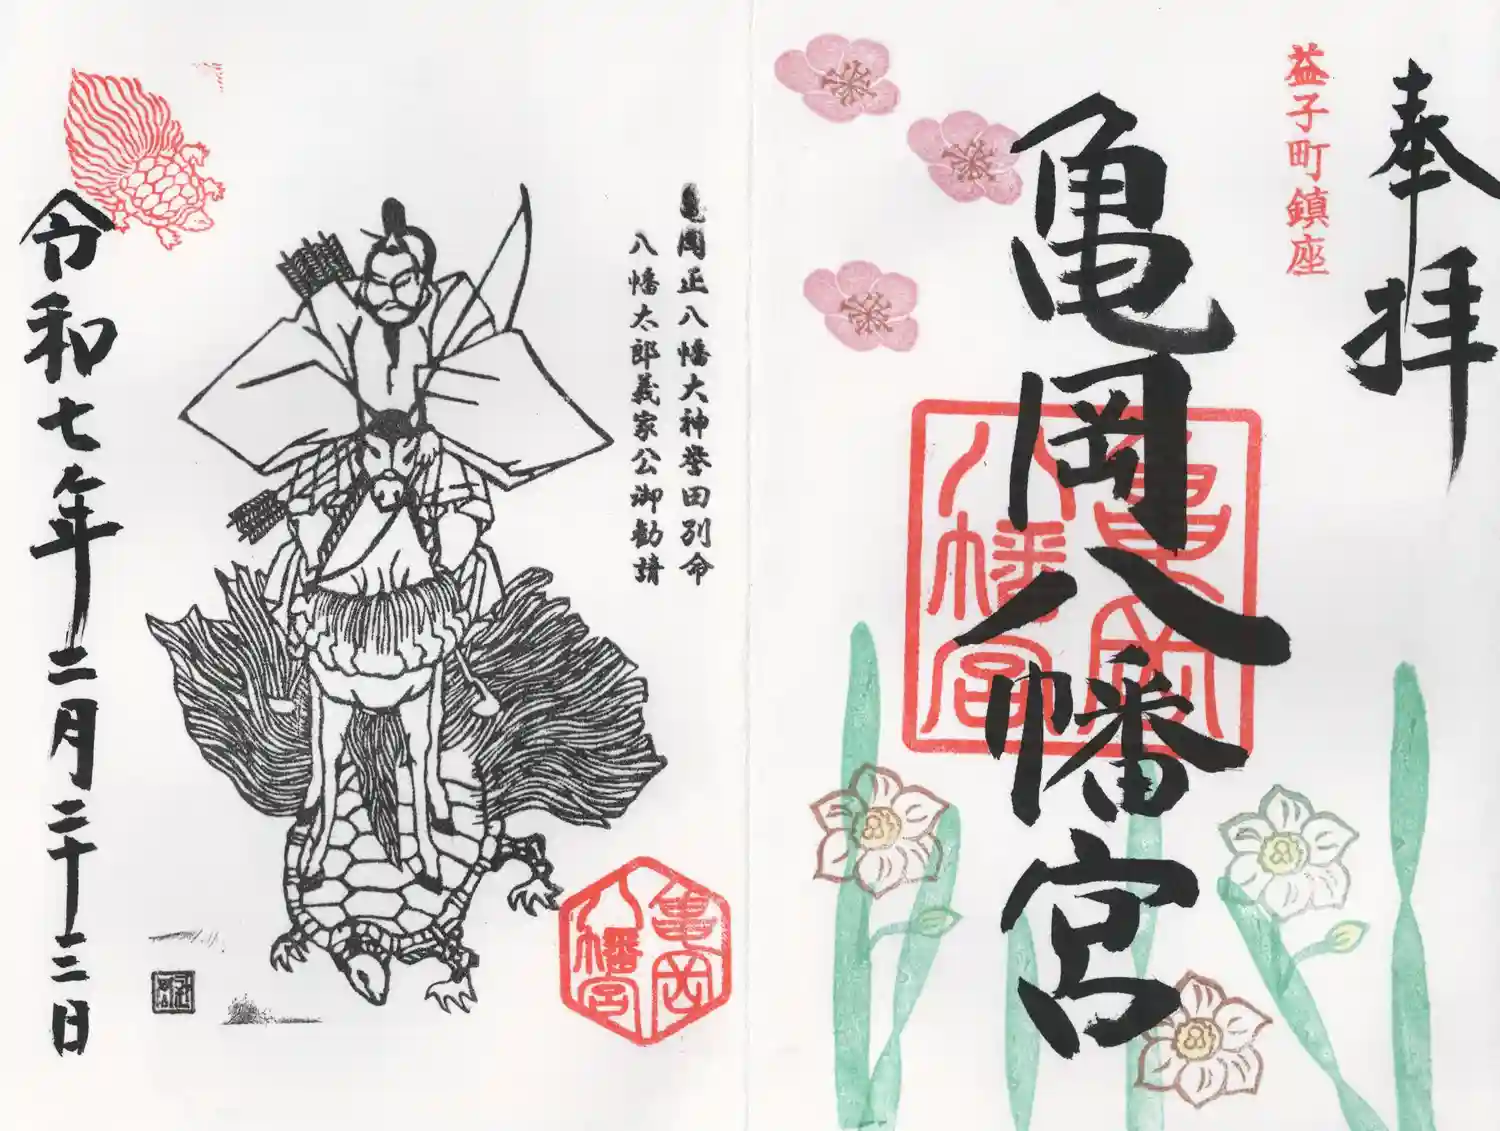 奉拝
益子町鎮座
亀岡八幡宮
亀岡
八幡宮
亀岡正八幡大神誉田別命
八幡太郎義家公御勧請
令和七年二月二十三日
亀岡
八幡宮